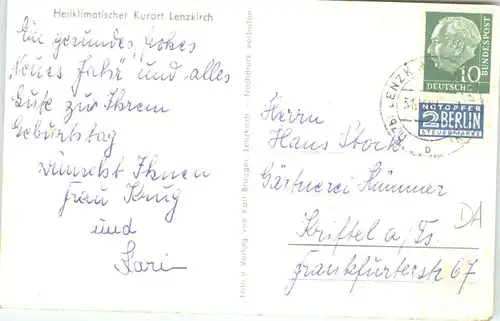 Heilklimatischer Kurort Lenzkirch
Ein gesundes, frohes
„Neues Jahr" und alles
Gute zu Ihrem
Geburtstag
wünscht Ihnen
Frau Krug
und
Karin
Foto u. Verlag von Karl Brugger, Lenzkirch - Nachdruck verboten
10
DEUTSCHE
BUNDESPOST
NOTOPFER
2 BERLIN
STEUERMARKE
LENZK
b
Herrn
Hans Stork
Gärtnerei Hümmer
Kriftel a/Ts.
Frankfurterstr 67
DA